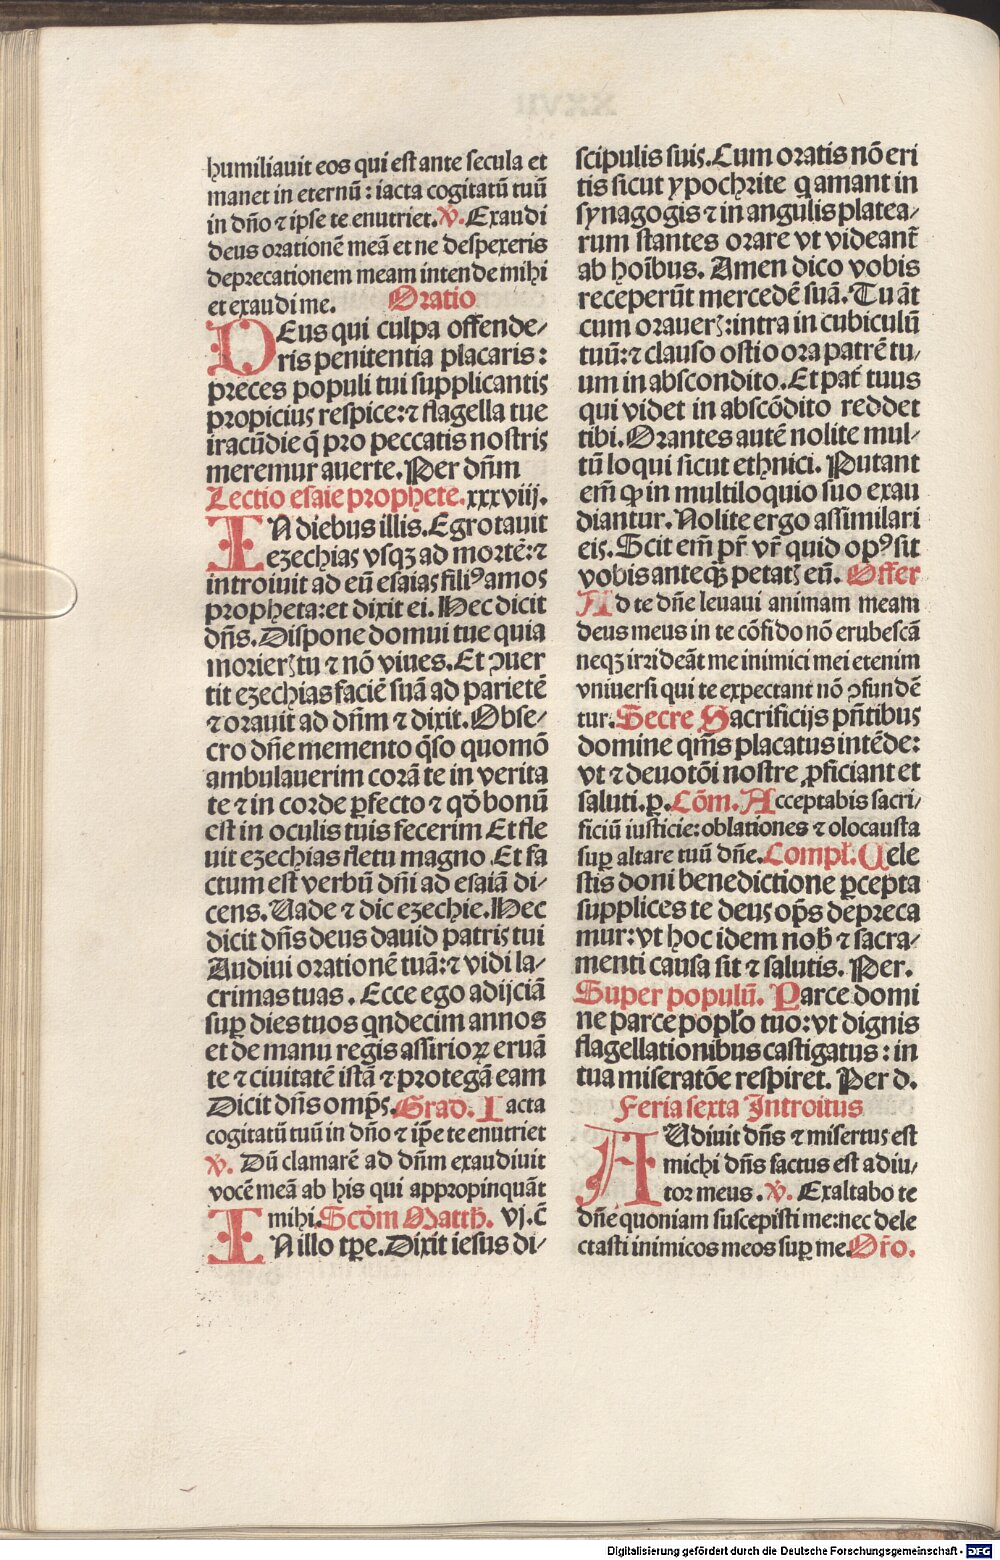 humiliauit eos qui est ante secula et
manet in eternū : iacta cogitatū tuū
in dn̄o ⁊ ipse te enutriet. ℣. Exaudi
deus orationē meā et ne despexeris
deprecationem meam intende mihi
et exaudi me. Oratio
DEus qui culpa offende/
ris penitentia placaris :
preces populi tui supplicantis
propicius respice: ⁊ flagella tue
iracūdie q̄ pro peccatis nostris
meremur auerte. Per dn̄m
Lectio esaie prophete. xxxviij.
IN diebus illis. Egrotauit
ezechias vsqꝫ ad mortē: ⁊
introiuit ad eū esaias filiꝰ amos
propheta: et dixit ei. Hec dicit
dn̄s. Dispone domui tue quia
morierꝫ tu ⁊ nō viues. Et ꝯuer
tit ezechias faciē suā ad parietē
⁊ orauit ad dn̄m ⁊ dixit. Obse/
cro dn̄e memento q̄so quomō
ambulauerim corā te in verita
te ⁊ in corde ꝑfecto ⁊ qd̄ bonū
est in oculis tuis fecerim Et fle
uit ezechias fletu magno Et fa
ctum est verbū dn̄i ad esaiā di/
cens. Uade ⁊ dic ezechie. Hec
dicit dn̄s deus dauid patris tui
Audiui orationē tuā: ⁊ vidi la/
crimas tuas . Ecce ego adijciā
suꝑ dies tuos qn̄decim annos
et de manu regis assirioꝝ eruā
te ⁊ ciuitatē istā ⁊ protegā eam
Dicit dn̄s omp̄s. Grad. Iacta
cogitatū tuū in dn̄o ⁊ ip̄e te enutriet
℣. Dū clamarē ad dn̄m exaudiuit
vocē meā ab his qui appropinquāt
mihi. Scd̄m Matth̄. vj. c̄
IN illo tp̄e. Dixit iesus di/
scipulis suis. Cum oratis nō eri
tis sicut ypochrite q amant in
synagogis ⁊ in angulis platea/
rum stantes orare vt videant̄
ab hoībus. Amen dico vobis
receperūt mercedē suā. Tu āt
cum orauerꝫ: intra in cubiculū
tuū: ⁊ clauso ostio ora patrē tu/
um in abscondito. Et pat̄ tuus
qui videt in abscōdito reddet
tibi. Orantes autē nolite mul/
tū loqui sicut ethnici. Putant
em̄ ꝙ in multiloquio suo exau
diantur. Nolite ergo assimilari
eis. Scit em̄ pr̄ vr̄ quid opꝰ sit
vobis anteqꝫ petatꝫ eū. Offer
Ad te dn̄e leuaui animam meam
deus meus in te cōfido nō erubescā
neqꝫ irrideāt me inimici mei etenim
vniuersi qui te expectant nō ꝯfundē
tur. Secre Sacrificijs pn̄tibus
domine qm̄s placatus intēde:
vt ⁊ deuotōi nostre ꝓficiant et
saluti. ꝑ. Cōm. Acceptabis sacri/
ficiū iusticie: oblationes ⁊ olocausta
suꝑ altare tuū dn̄e. Compł. Cele
stis doni benedictione ꝑcepta
supplices te deus op̄s depreca
mur: vt hoc idem nob̄ ⁊ sacra/
menti causa sit ⁊ salutis. Per.
Super populū. Parce domi
ne parce popło tuo: vt dignis
flagellationibus castigatus : in
tua miseratōe respiret. Per d.
Feria sexta Introitus
AUdiuit dn̄s ⁊ misertus est
michi dn̄s factus est adiu/
tor meus . ℣. Exaltabo te
dn̄e quoniam suscepisti me: nec dele
ctasti inimicos meos suꝑ me. Or̄o.
Digitalisierung gefördert durch die Deutsche Forschungsgemeinschaft - DFG